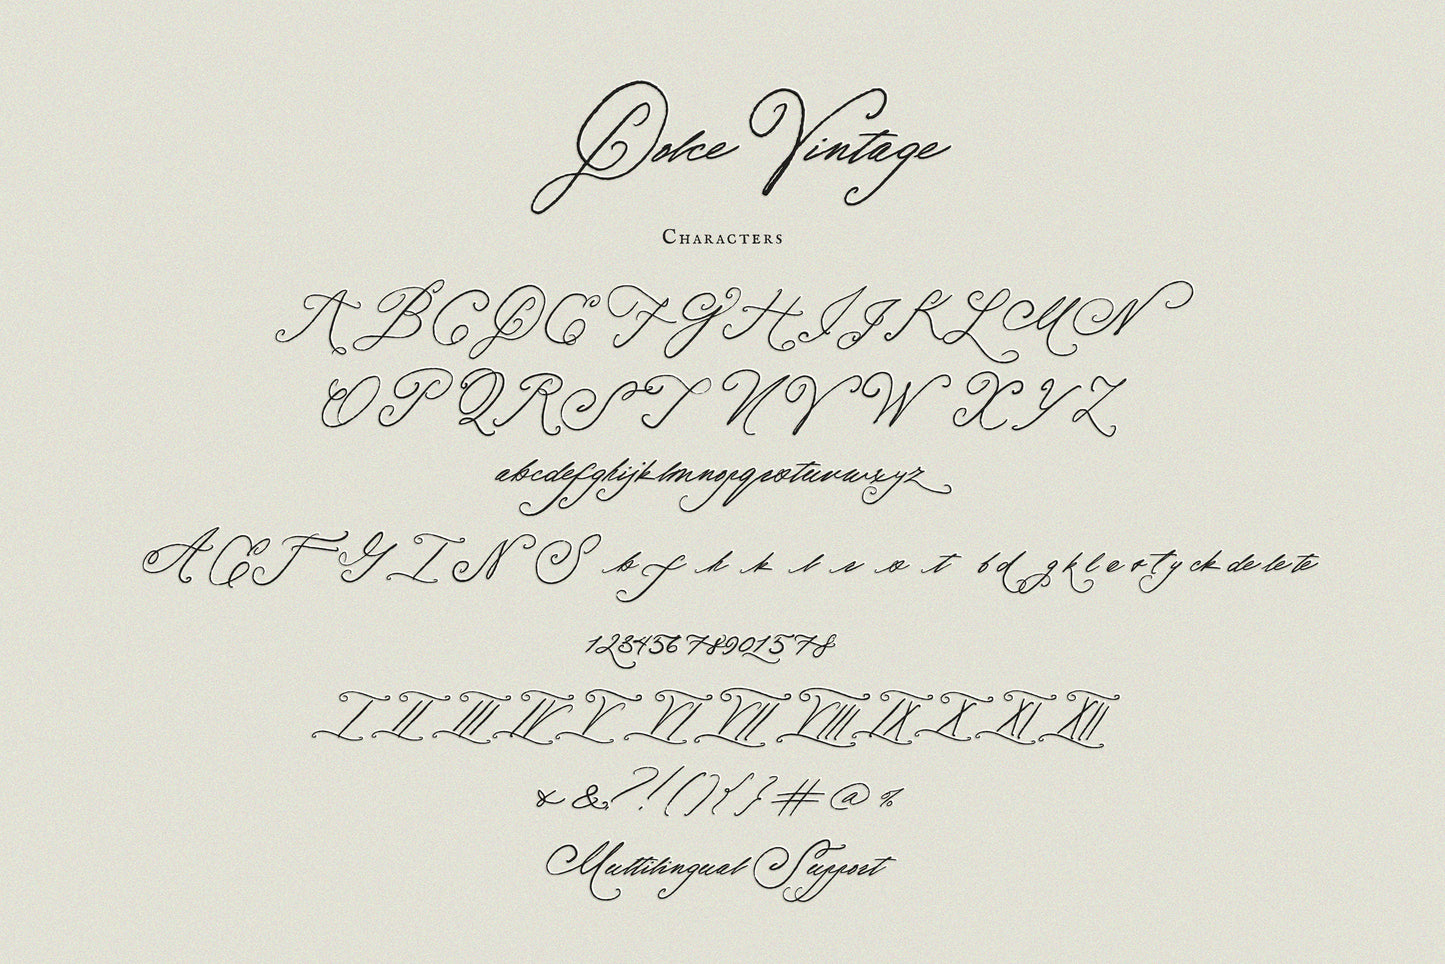 Dolce Vintage
Characters
A B C D E F G H I J K L M N
O P Q R S T U V W X Y Z
abcdefghijklmnopqrstuvwxyz
A E F G I N S b f h k l r s t b d g k l e s t y ck de le te
123456789015 78
I II III IV V VI VII VIII IX X XI XII
& & ? ! ( ) { } # @ %
Multilingual Support